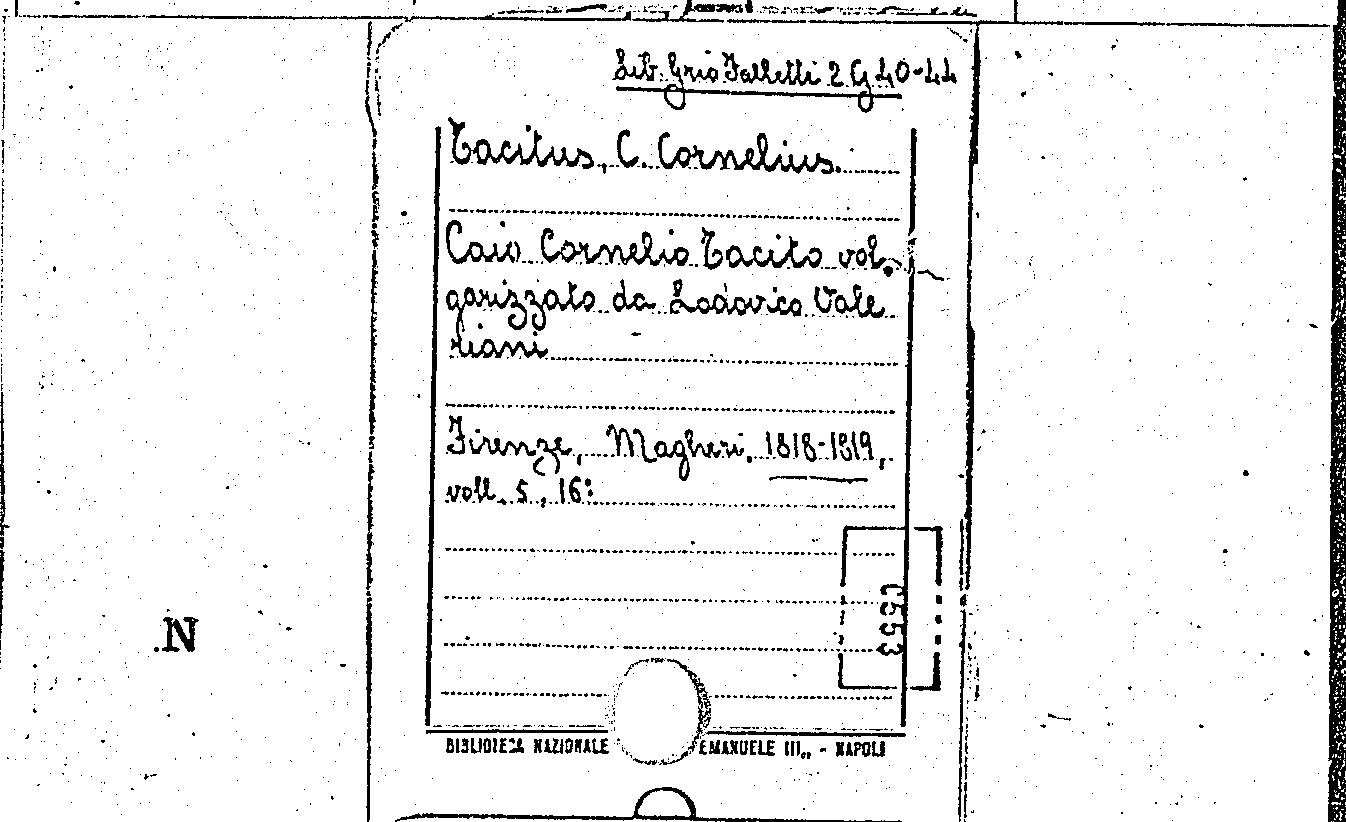 Lib. Grio Falletti 2 G 40-44
Tacitus, C. Cornelius.
Caio Cornelio Tacito vol-
garizzato da Lodovico Vale
riani
Firenze, Magheri, 1818-1819,
voll. 5, 16:
C553
N
BIBLIOTECA NAZIONALE EMANUELE III,, - NAPOLI